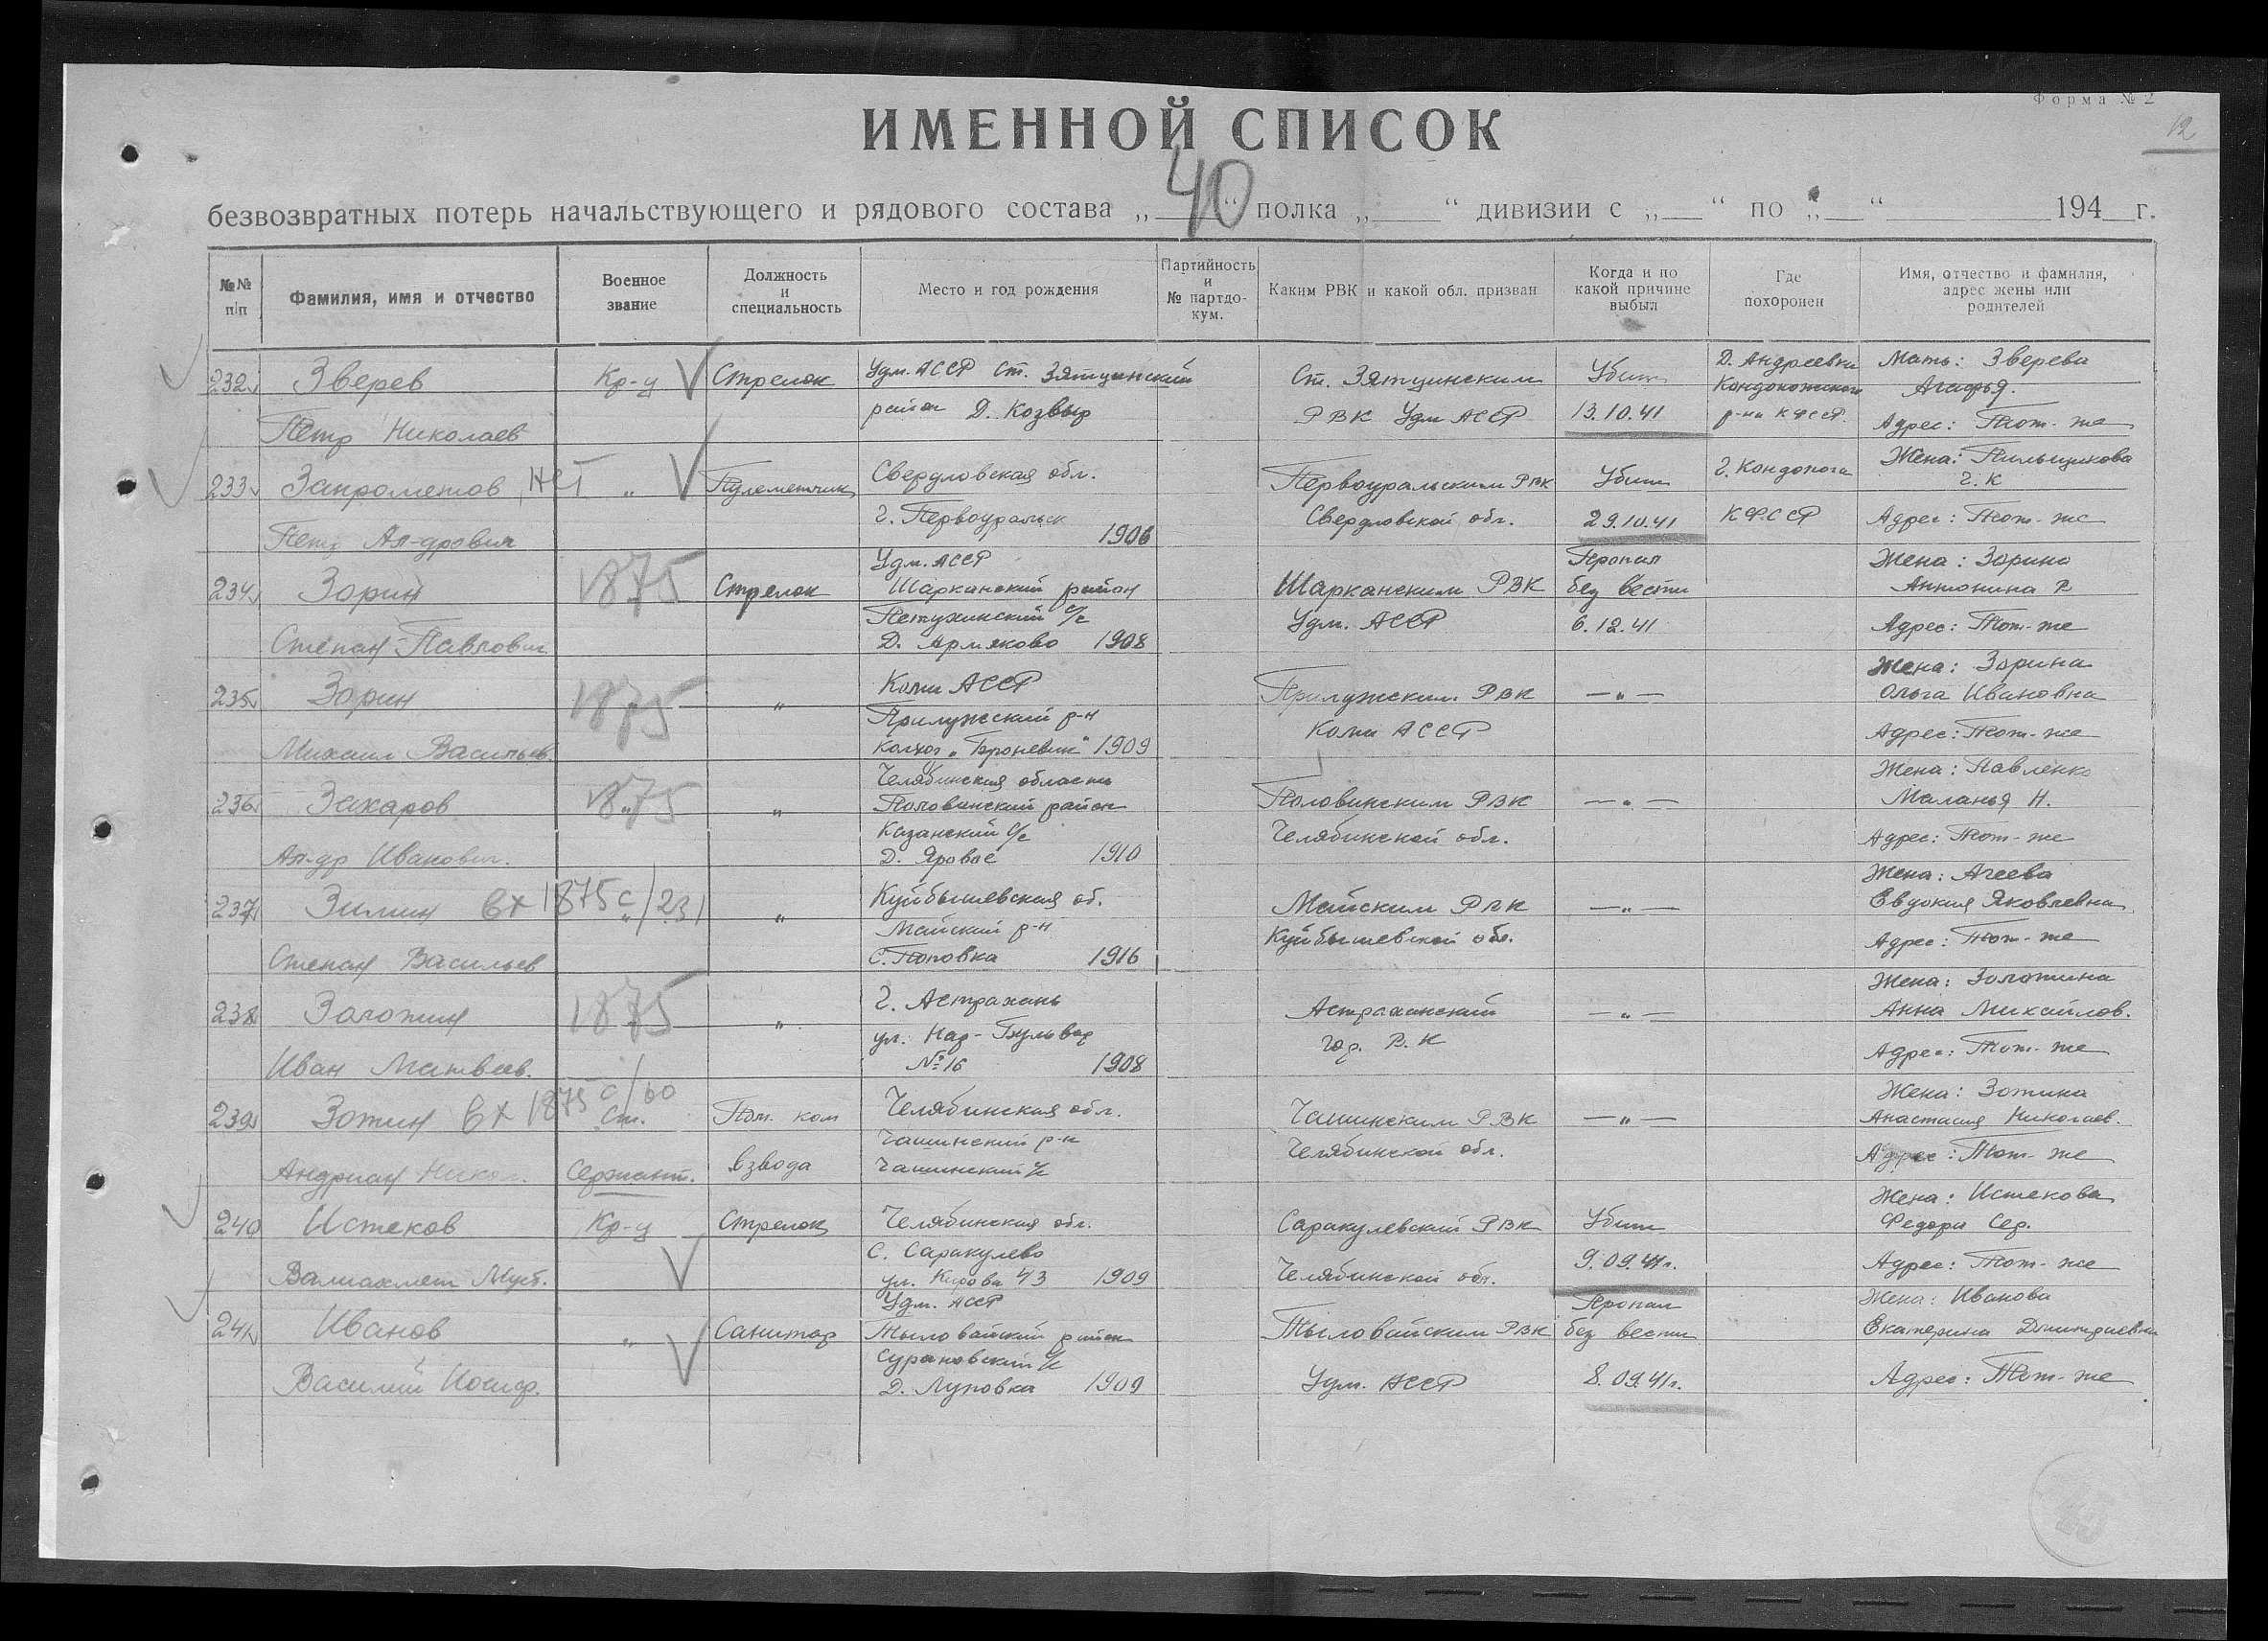 Форма № 2
12
ИМЕННОЙ СПИСОК
безвозвратных потерь начальствующего и рядового состава „ 40 “ полка „ “ дивизии с „ “ по „ “ 194 г.
№№ п/п
Фамилия, имя и отчество
Военное звание
Должность и специальность
Место и год рождения
Партийность и № партдо-кум.
Каким РВК и какой обл. призван
Когда и по какой причине выбыл
Где похоронен
Имя, отчество и фамилия, адрес жены или родителей
232 Зверев Кр-ц Стрелок Удм. АССР Ст. Зятцинский Ст. Зятцинским Убит Д. Андреевка Мать: Зверева
район Д. Козвыр Кондопожского Агафья.
Петр Николаев РВК Удм АССР 13.10.41 р-на КФССР. Адрес: Тот-же
233 Запрометов, НЕТ „ Пулеметчик Свердловская обл. Первоуральским РВК Убит г. Кондопога Жена: Пильщикова
Г. К
Петр Ал-дрович г. Первоуральск 1906 Свердловской обл. 29.10.41 КФССР Адрес: Тот-же
234 Зорин 1875 Стрелок Удм. АССР Шарканским РВК Пропал без вести Жена: Зорина
Шарканский район Антонина
Петухинский с/с
Степан Павлович Д. Армяково 1908 Удм. АССР 6.12.41 Адрес: Тот-же
235 Зорин 1875 „ Коми АССР Прилужским РВК —„— Жена: Зорина
Прилужский р-н Ольга Ивановна
Михаил Васильев. колхоз „Броневик“ 1909 Коми АССР Адрес: Тот-же
236 Захаров 1875 „ Челябинская область Половинским РВК —„— Жена: Павленко
Половинский район Маланья Н.
Казанский с/с
Ал-др Иванович. Д. Яровое 1910 Челябинской обл. Адрес: Тот-же
237 Зимин вх 1875с/231 „ „ Куйбышевская об. Майским РВК —„— Жена: Агеева
Майский р-н Евдокия Яковлевна
Степан Васильев С. Поповка 1916 Куйбышевской обл. Адрес: Тот-же
238 Золотин 1875 „ г. Астрахань Астраханский —„— Жена: Золотина
ул. Нар-Бульвар Анна Михайлов.
Иван Матвеев. №16 1908 гор. В. К Адрес: Тот-же
239 Зотин вх 1875с/60 Ст. Пом. ком Челябинская обл. Чашинским РВК —„— Жена: Зотина
Чашинский р-н Анастасия Николаев.
Андриан Никол. Сержант. взвода Чашинский с/с Челябинской обл. Адрес: Тот-же
240 Истеков Кр-ц Стрелок Челябинская обл. Саракулевский РВК Убит Жена: Истекова
С. Саракулево Федора Сер.
Валиахмет Муст. ул. Кирова 43 1909 Челябинской обл. 9.09.41г. Адрес: Тот-же
241 Иванов „ Санитар Удм. АССР Тыловайским РВК Пропал без вести Жена: Иванова
Тыловайский район Екатерина Дмитриевна
Сурановский с/с
Василий Иосиф. Д. Луповка 1909 Удм. АССР 8.09.41г. Адрес: Тот-же